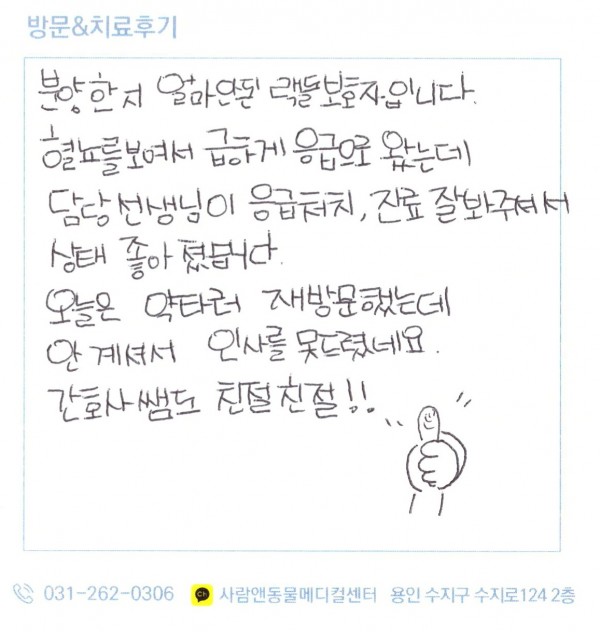 방문&치료후기
분양한지 얼마안된 랙돌보호자입니다.
혈뇨를보여서 급하게 응급으로 왔는데
담당선생님이 응급처치, 진료 잘봐주셔서
상태 좋아졌습니다.
오늘은 약타러 재방문했는데
안계셔서 인사를 못드렸네요.
간호사쌤도 친절친절!!
031-262-0306 Ch 사람앤동물메디컬센터 용인 수지구 수지로124 2층